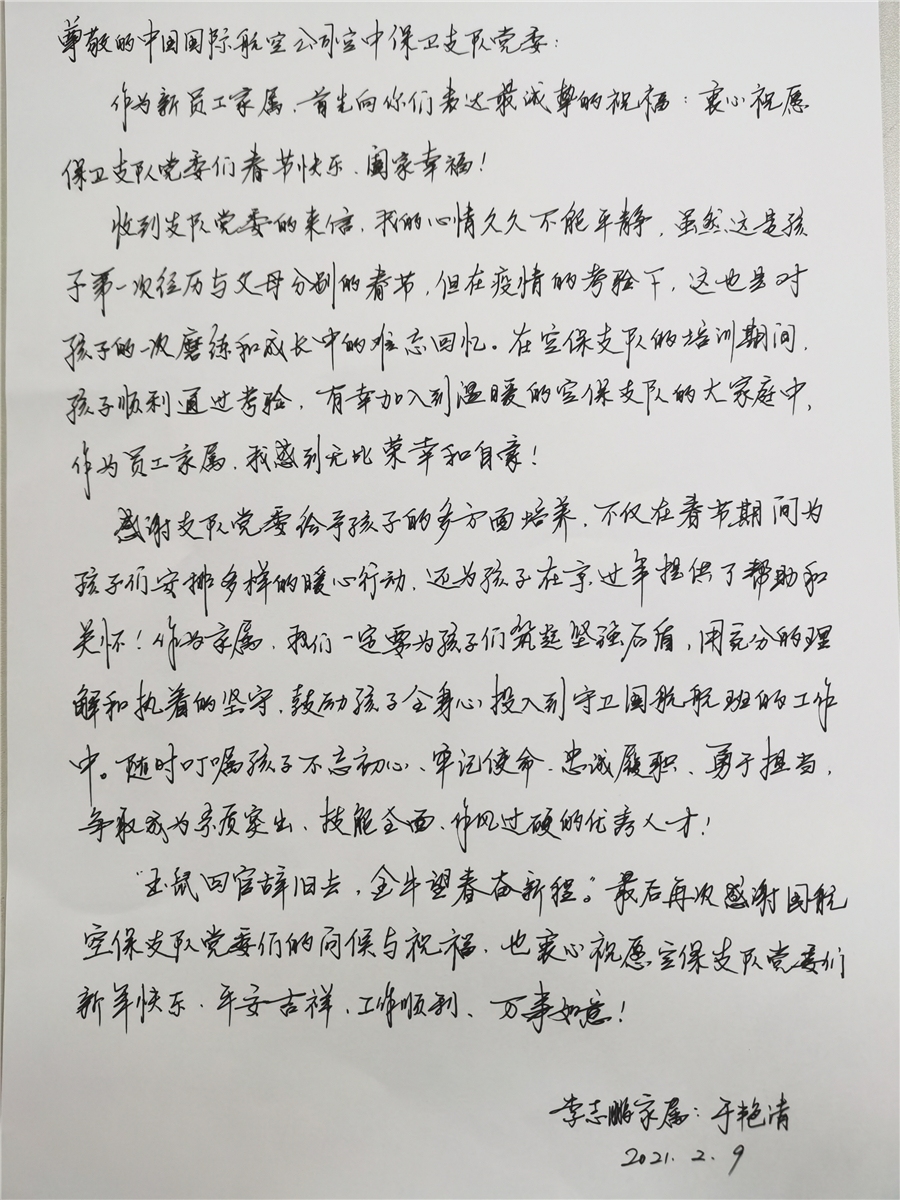 尊敬的中国国际航空公司空中保卫支队党委：
作为新员工家属、首先向你们表达最诚挚的祝福：衷心祝愿
保卫支队党委们春节快乐、阖家幸福！
收到支队党委的来信，我的心情久久不能平静，虽然这是孩
子第一次经历与父母分别的春节，但在疫情的考验下，这也是对
孩子的一次磨练和成长中的难忘回忆。在空保支队的培训期间，
孩子顺利通过考验，有幸加入到温暖的空保支队的大家庭中，
作为员工家属，我感到无比荣幸和自豪！
感谢支队党委给予孩子的多方面培养，不仅在春节期间为
孩子们安排多样的暖心行动，还为孩子在京过年提供了帮助和
关怀！作为家属，我们一定要为孩子们筑起坚强后盾，用充分的理
解和执着的坚守，鼓励孩子全身心投入到守卫国航航班的工作
中。随时叮嘱孩子不忘初心、牢记使命、忠诚履职、勇于担当，
争取成为素质突出、技能全面、作风过硬的优秀人才！
“玉鼠回宫辞旧去，金牛望春奋新程。”最后再次感谢国航
空保支队党委们的问候与祝福，也衷心祝愿空保支队党委们
新年快乐、平安吉祥、工作顺利、万事如意！
李志鹏家属：于艳清
2021.2.9